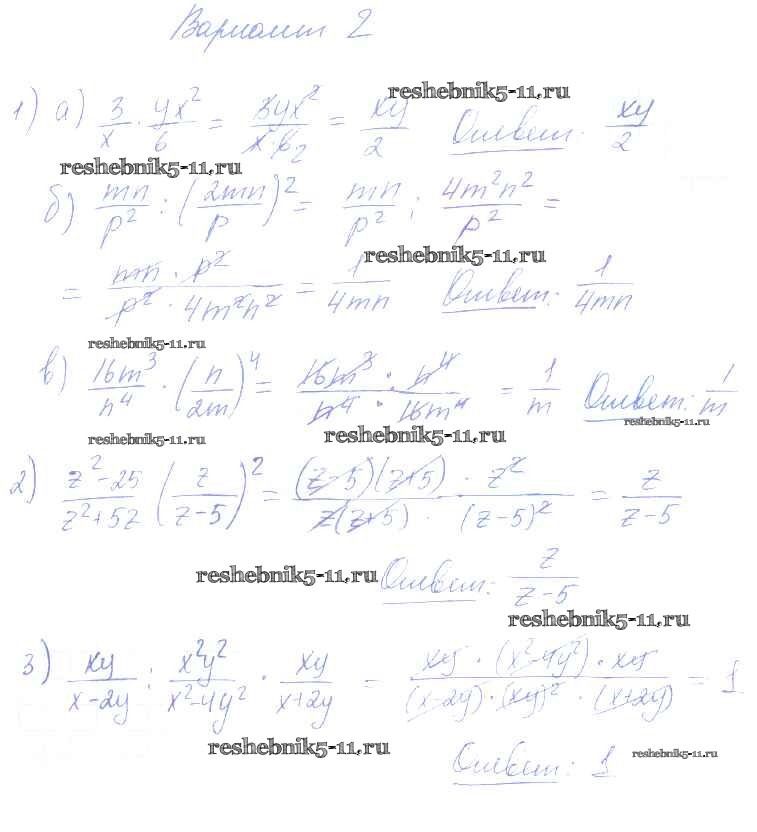 Вариант 2
reshebnik5-11.ru
1) а) 3/x · yx²/6 = 3yx²/(x·6₂) = xy/2 Ответ: xy/2
reshebnik5-11.ru
б) mn/p² : (2mn/p)² = mn/p² : 4m²n²/p² =
reshebnik5-11.ru
= (mn · p²)/(p² · 4m²n²) = 1/(4mn) Ответ: 1/(4mn)
reshebnik5-11.ru
в) 16m³/n⁴ · (n/2m)⁴ = (16m³ · n⁴)/(n⁴ · 16m⁴) = 1/m Ответ: 1/m
reshebnik5-11.ru
reshebnik5-11.ru reshebnik5-11.ru
2) (z²-25)/(z²+5z) (z/(z-5))² = ((z-5)(z+5) · z²)/(z(z+5) · (z-5)²) = z/(z-5)
reshebnik5-11.ru Ответ: z/(z-5)
reshebnik5-11.ru
3) xy/(x-2y) : x²y²/(x²-4y²) · xy/(x+2y) = (xy · (x²-4y²) · xy)/((x-2y) · (xy)² · (x+2y)) = 1
reshebnik5-11.ru
Ответ: 1 reshebnik5-11.ru